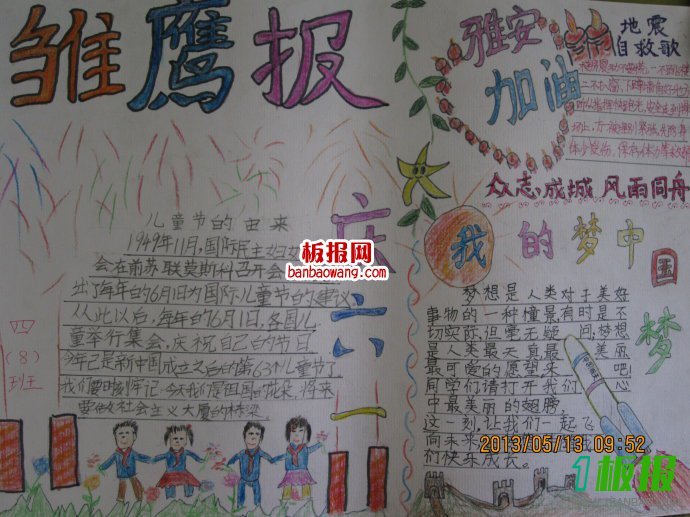 雏鹰报
儿童节的由来
1949年11月,国际民主妇
会在前苏联莫斯科召开会
出了每年的6月1日为国际儿童节的建议
从此以后,每年的6月1日,各国儿
童举行集会,庆祝自己的节日
今年已是新中国成立之后的第63个儿童节了
我们要时刻牢记:今天我们是祖国的花朵,将来
要做社会主义大厦的栋梁
四
(8)
班
庆六一
板报网
banbaowang.com
雅安
加油
地震
自救歌
众志成城 风雨同舟
我的梦中国梦
梦想是人类对于美好
事物的一种憧憬,有时是不
切实际,但毫无疑问,梦想
是人类最天真最美丽
最可爱的愿望来吧!
同学们请打开我们心
中最美丽的翅膀
这一刻,让我们一起飞
向未来
们快乐成长。
2013/05/13 09:52
1板报